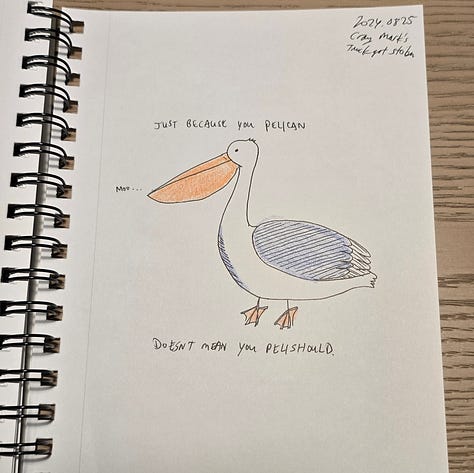 2024.08.25
Cray Mark's
Truck got stolen
JUST BECAUSE YOU PELICAN
MOO...
DOESN'T MEAN YOU PELISHOULD.